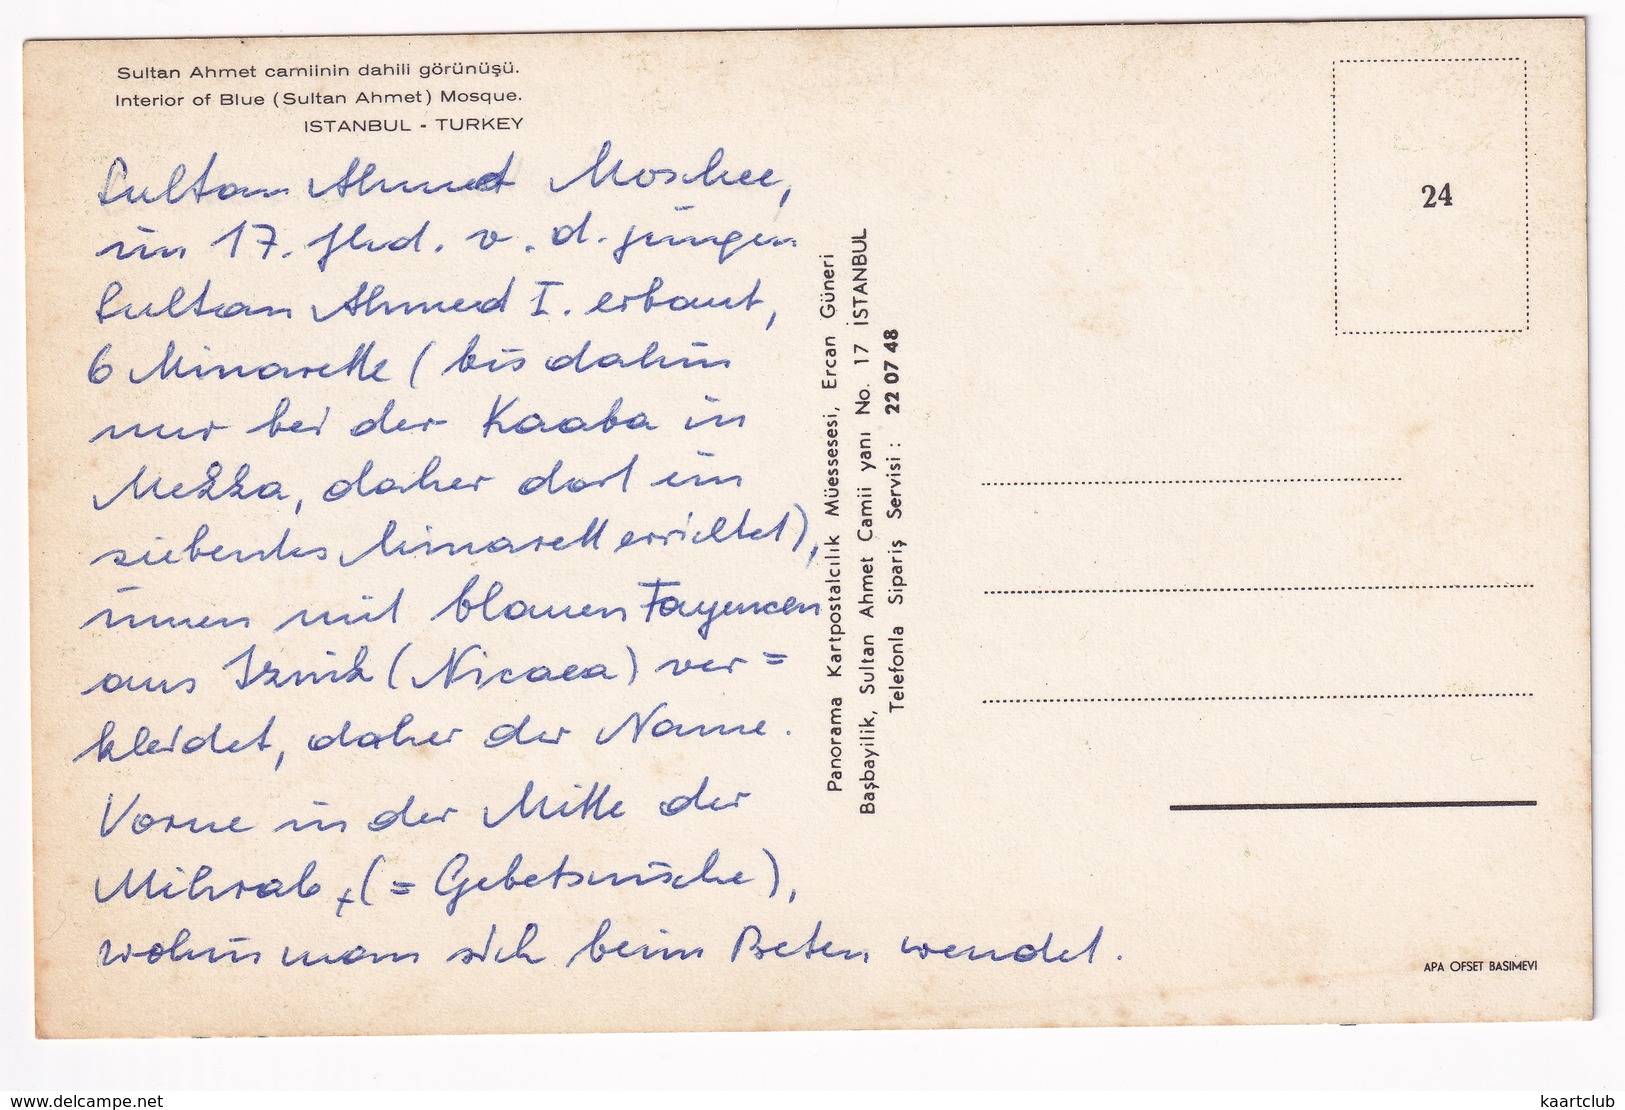 Sultan Ahmet camiinin dahili görünüşü.
Interior of Blue (Sultan Ahmet) Mosque.
ISTANBUL - TURKEY
Sultan Ahmed Moschee,
im 17. Jhd. v. d. jungen
Sultan Ahmed I. erbaut,
6 Minarette (bis dahin
nur bei der Kaaba in
Mekka, daher dort ein
siebentes Minarett errichtet),
innen mit blauen Fayencen
aus Iznik (Nicaea) ver=
kleidet, daher der Name.
Vorne in der Mitte der
Mihrab + (= Gebetsnische),
wohin man sich beim Beten wendet.
Panorama Kartpostalcılık Müessesesi, Ercan Güneri
Başbayilik, Sultan Ahmet Camii yanı No. 17 İSTANBUL
Telefonla Sipariş Servisi : 22 07 48
24
APA OFSET BASIMEVI
www.delcampe.net
kaartclub